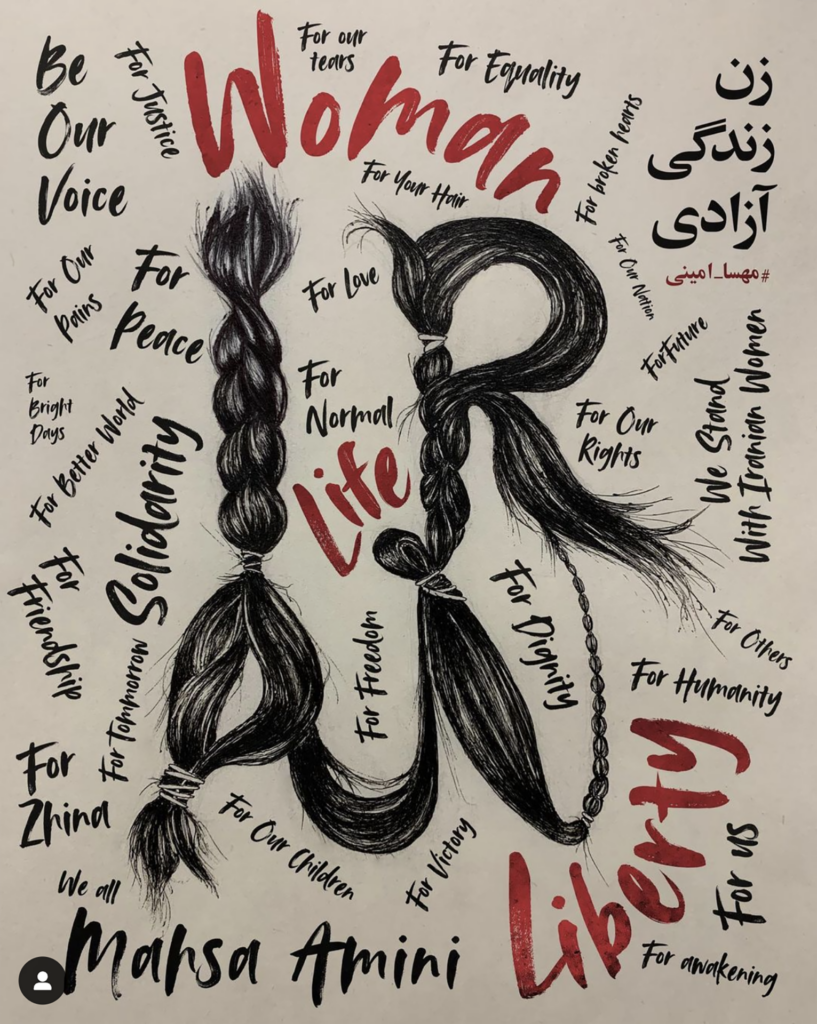 Be
Our
Voice
For Justice
Woman
For our
tears
For Equality
For Your Hair
For broken hearts
زن
زندگی
آزادی
#مهسا_امینی
For Our
Pains
For
Peace
For Love
For Our Nation
For Future
For
Bright
Days
For Better World
Solidarity
For
Normal
Life
For Our
Rights
We Stand
With Iranian Women
For
Friendship
For Tommorrow
For Freedom
For Dignity
For Others
For Humanity
For
Zhina
For Our Children
For Victory
Liberty
For us
We all
Mahsa Amini
For awakening